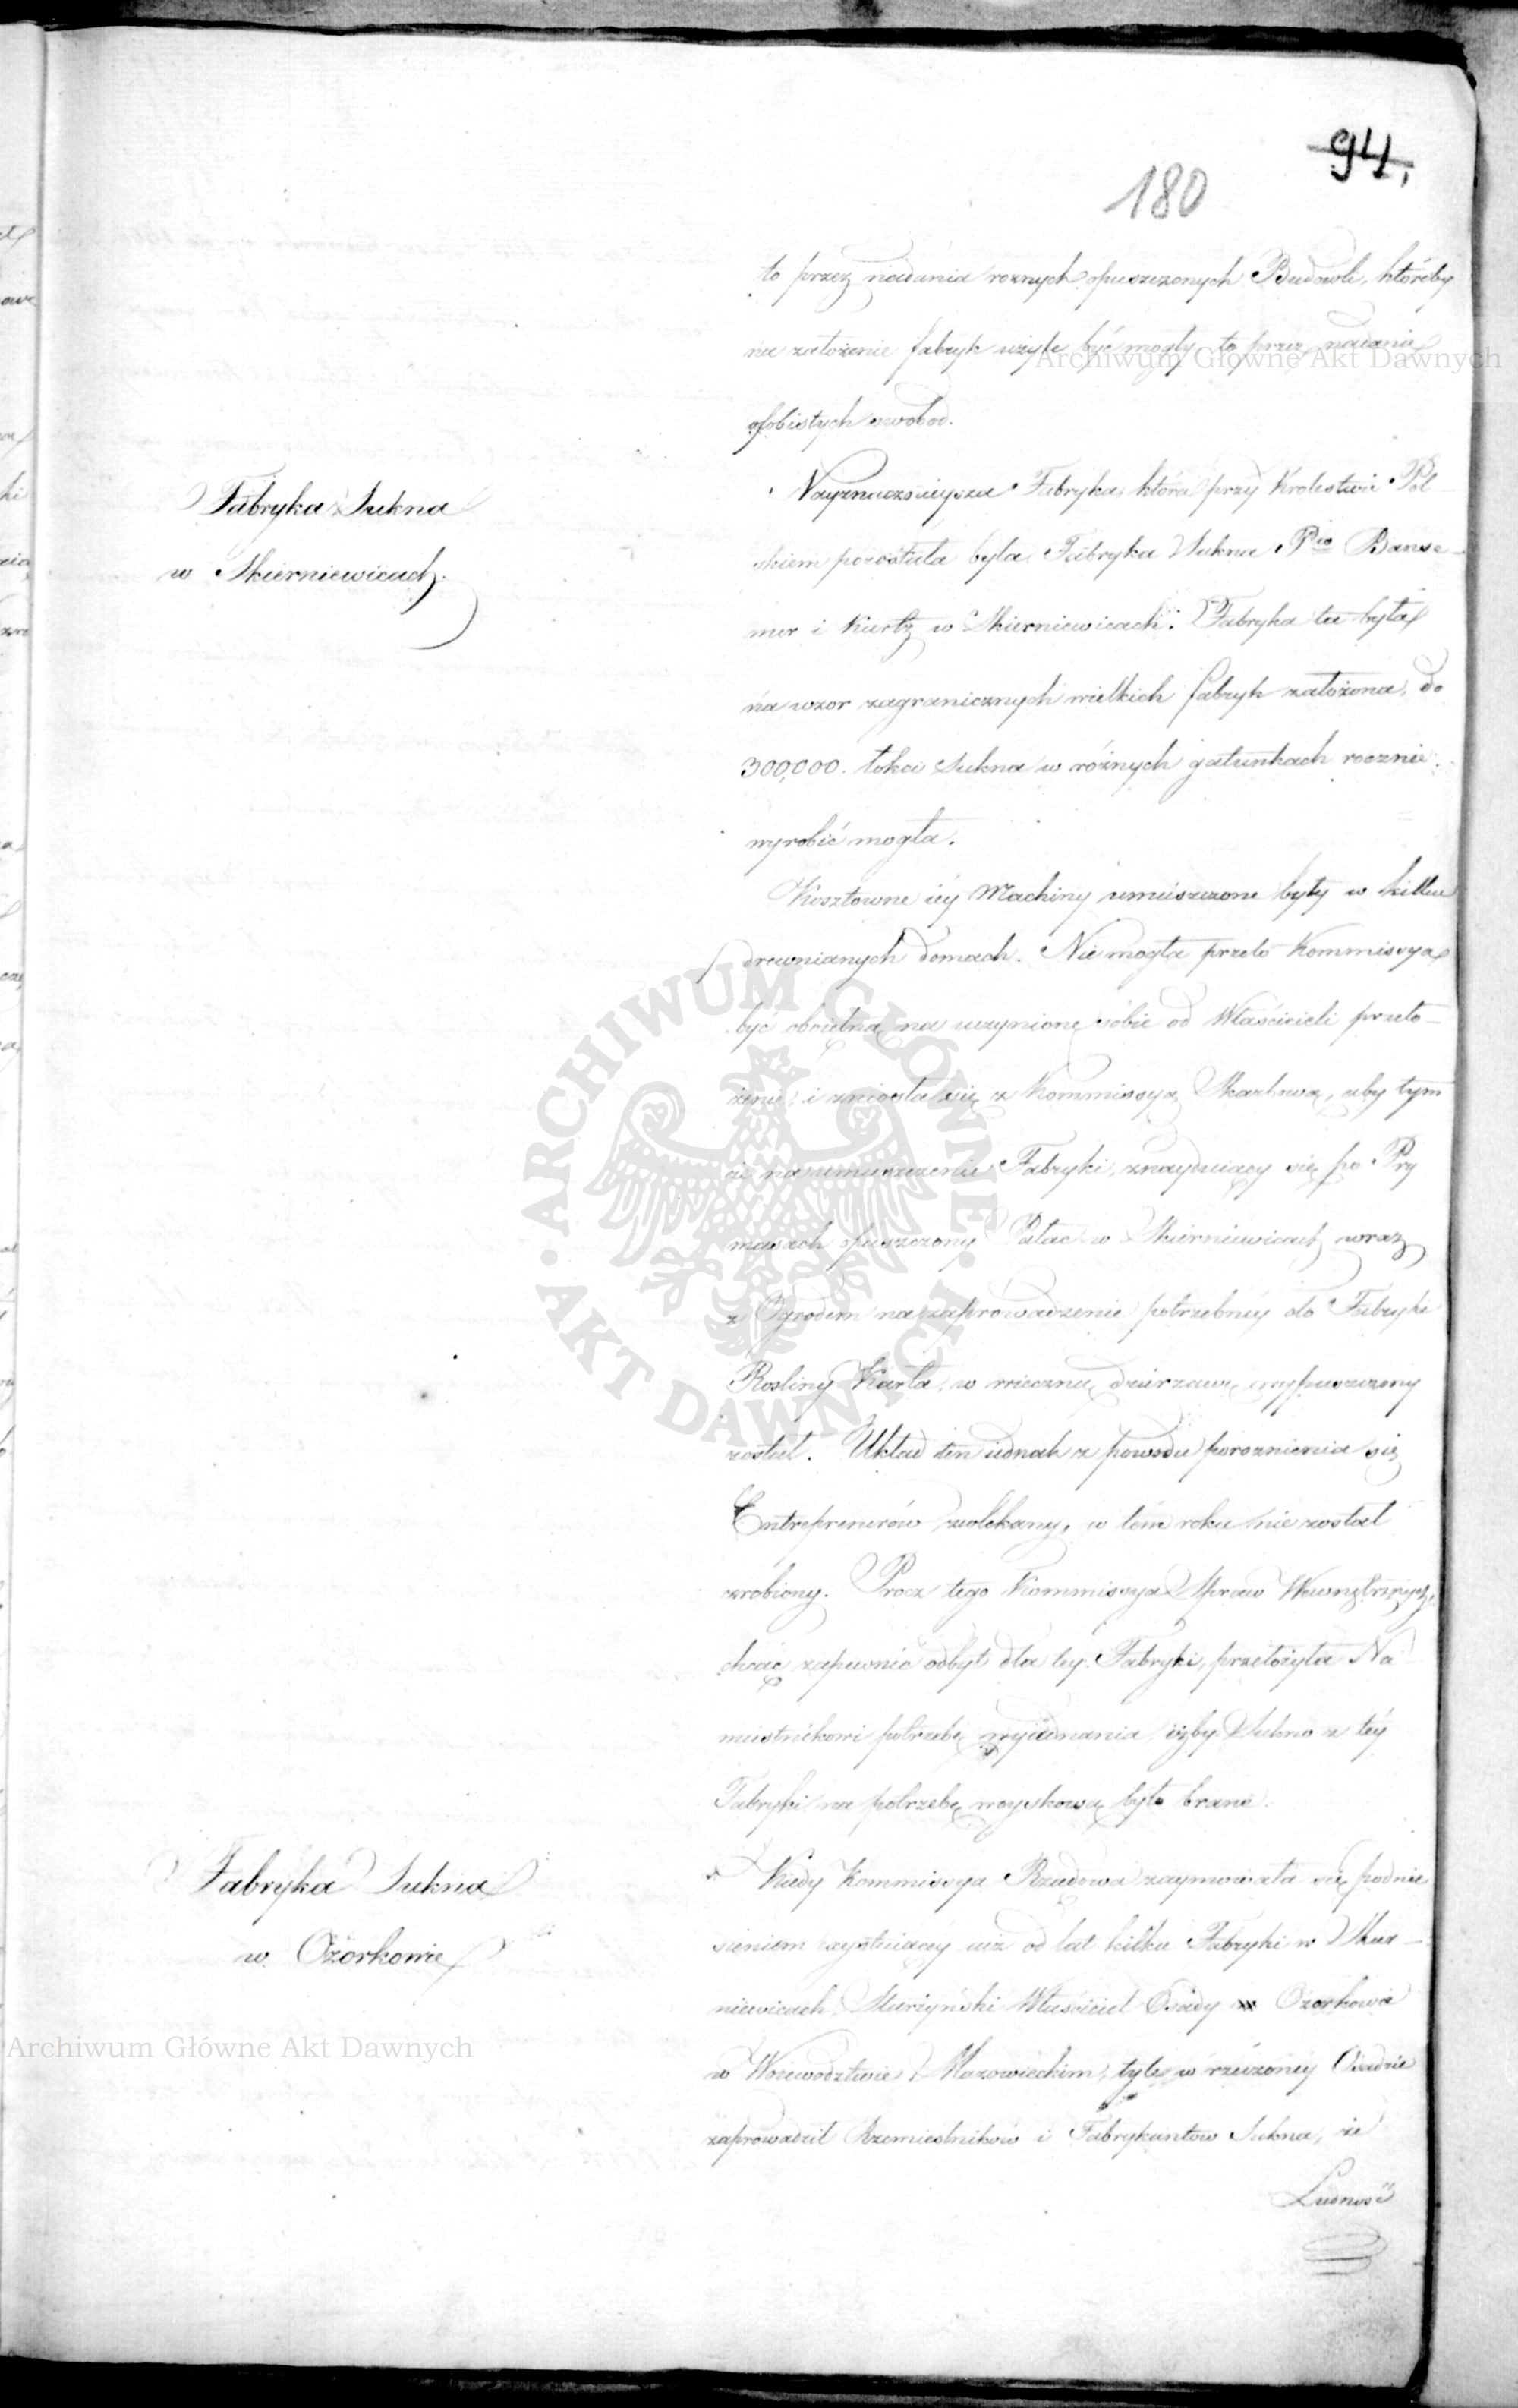 94,
180
to przez nadania roznych opuszczonych Budowli, któreby
na założenie fabryk użyte być mogły to przez nadanie
osobistych swobod.
Fabryka Sukna
w Skierniewicach.
Nayznacznieysza Fabryka która przy Krolestwie Pol
skiem pozostała była Fabryka Sukna Banse-
mer i Kurtz w Skierniewicach. Fabryka ta była
na wzor zagranicznych wielkich fabryk założona, do
300,000. łokci Sukna w różnych gatunkach rocznie
wyrobić mogła.
Kosztowne iéy Machiny umieszczone były w kilku
drewnianych domach. Nie mogła przeto Kommissya
być oboiętną na uczynione sobie od Właścicieli przeło-
żenie, i zniosła się z Kommissyą Skarbową, aby tym
że na umieszczenie Fabryki, znayduiący się po Pry
masach opuszczony Pałac w Skierniewicach wraz
z Ogrodem na zaprowadzenie potrzebnéy do Fabryki
Rosliny Karta, w wieczną dzierzawę wypuszczony
został. Układ ten iednak z powodu poroznienia się
Entreprenerów zwlekany, w tém roku nie został
zrobiony. Procz tego Kommissya Spraw Wewnętrznych,
chcąc zapewnić odbyt dla tey Fabryki, przełożyła Na
miestnikowi potrzebę wyiednania, iżby Sukno z téy
Fabryki na potrzebę woyskową było brane.
Fabryka Sukna
w Ozorkowie
Kiedy Kommissya Rządowa zaymowała się podnie
sieniem exystuiącéy iuż od lat kilku Fabryki w Skier-
niewicach, Starzyński Właściciel Osady Ozorkowa
w Woiewodztwie Mazowieckim, tyle w rzeczoney Osadzie
zaprowadził Rzemieslników i Fabrykantow Sukna, że
Ludność
Archiwum Główne Akt Dawnych
Archiwum Główne Akt Dawnych
ARCHIWUM GŁÓWNE AKT DAWNYCH